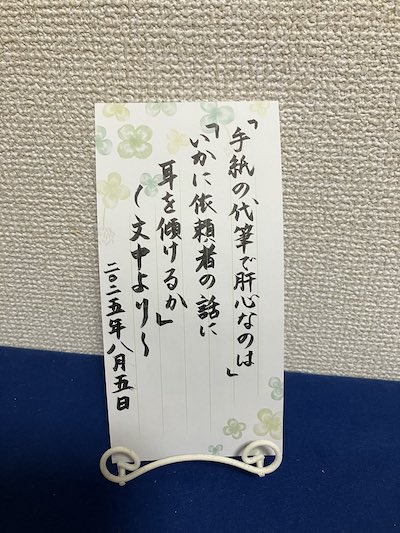 「手紙の代筆で肝心なのは」
「いかに依頼者の話に
耳を傾けるか」
〜文中より〜
二〇二五年八月五日